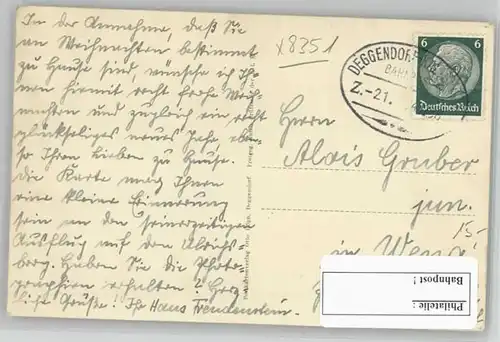 In der Annahme, daß Sie
an Weihnachten bestimmt
zu Hause sind, wünsche ich Ih-
nen hiermit recht frohe Weih-
nachten und zugleich ein recht
glückseliges neues Jahr eben-
so Ihren Lieben zu Hause.
Die Karte mag Ihnen
eine kleine Erinnerung
sein an den seinerzeitigen
Ausflug auf den Ulrichs-
berg. Haben Sie die Photo-
graphien erhalten? Herz-
liche Grüße! Ihr Hans Freudenstein.
x8351
DEGGENDORF
BAHN
Z.-21.
6 6
Deutsches Reich
Herrn
Alois Gruber
jun.
15-
in
Philatelie :
Bahnpost !